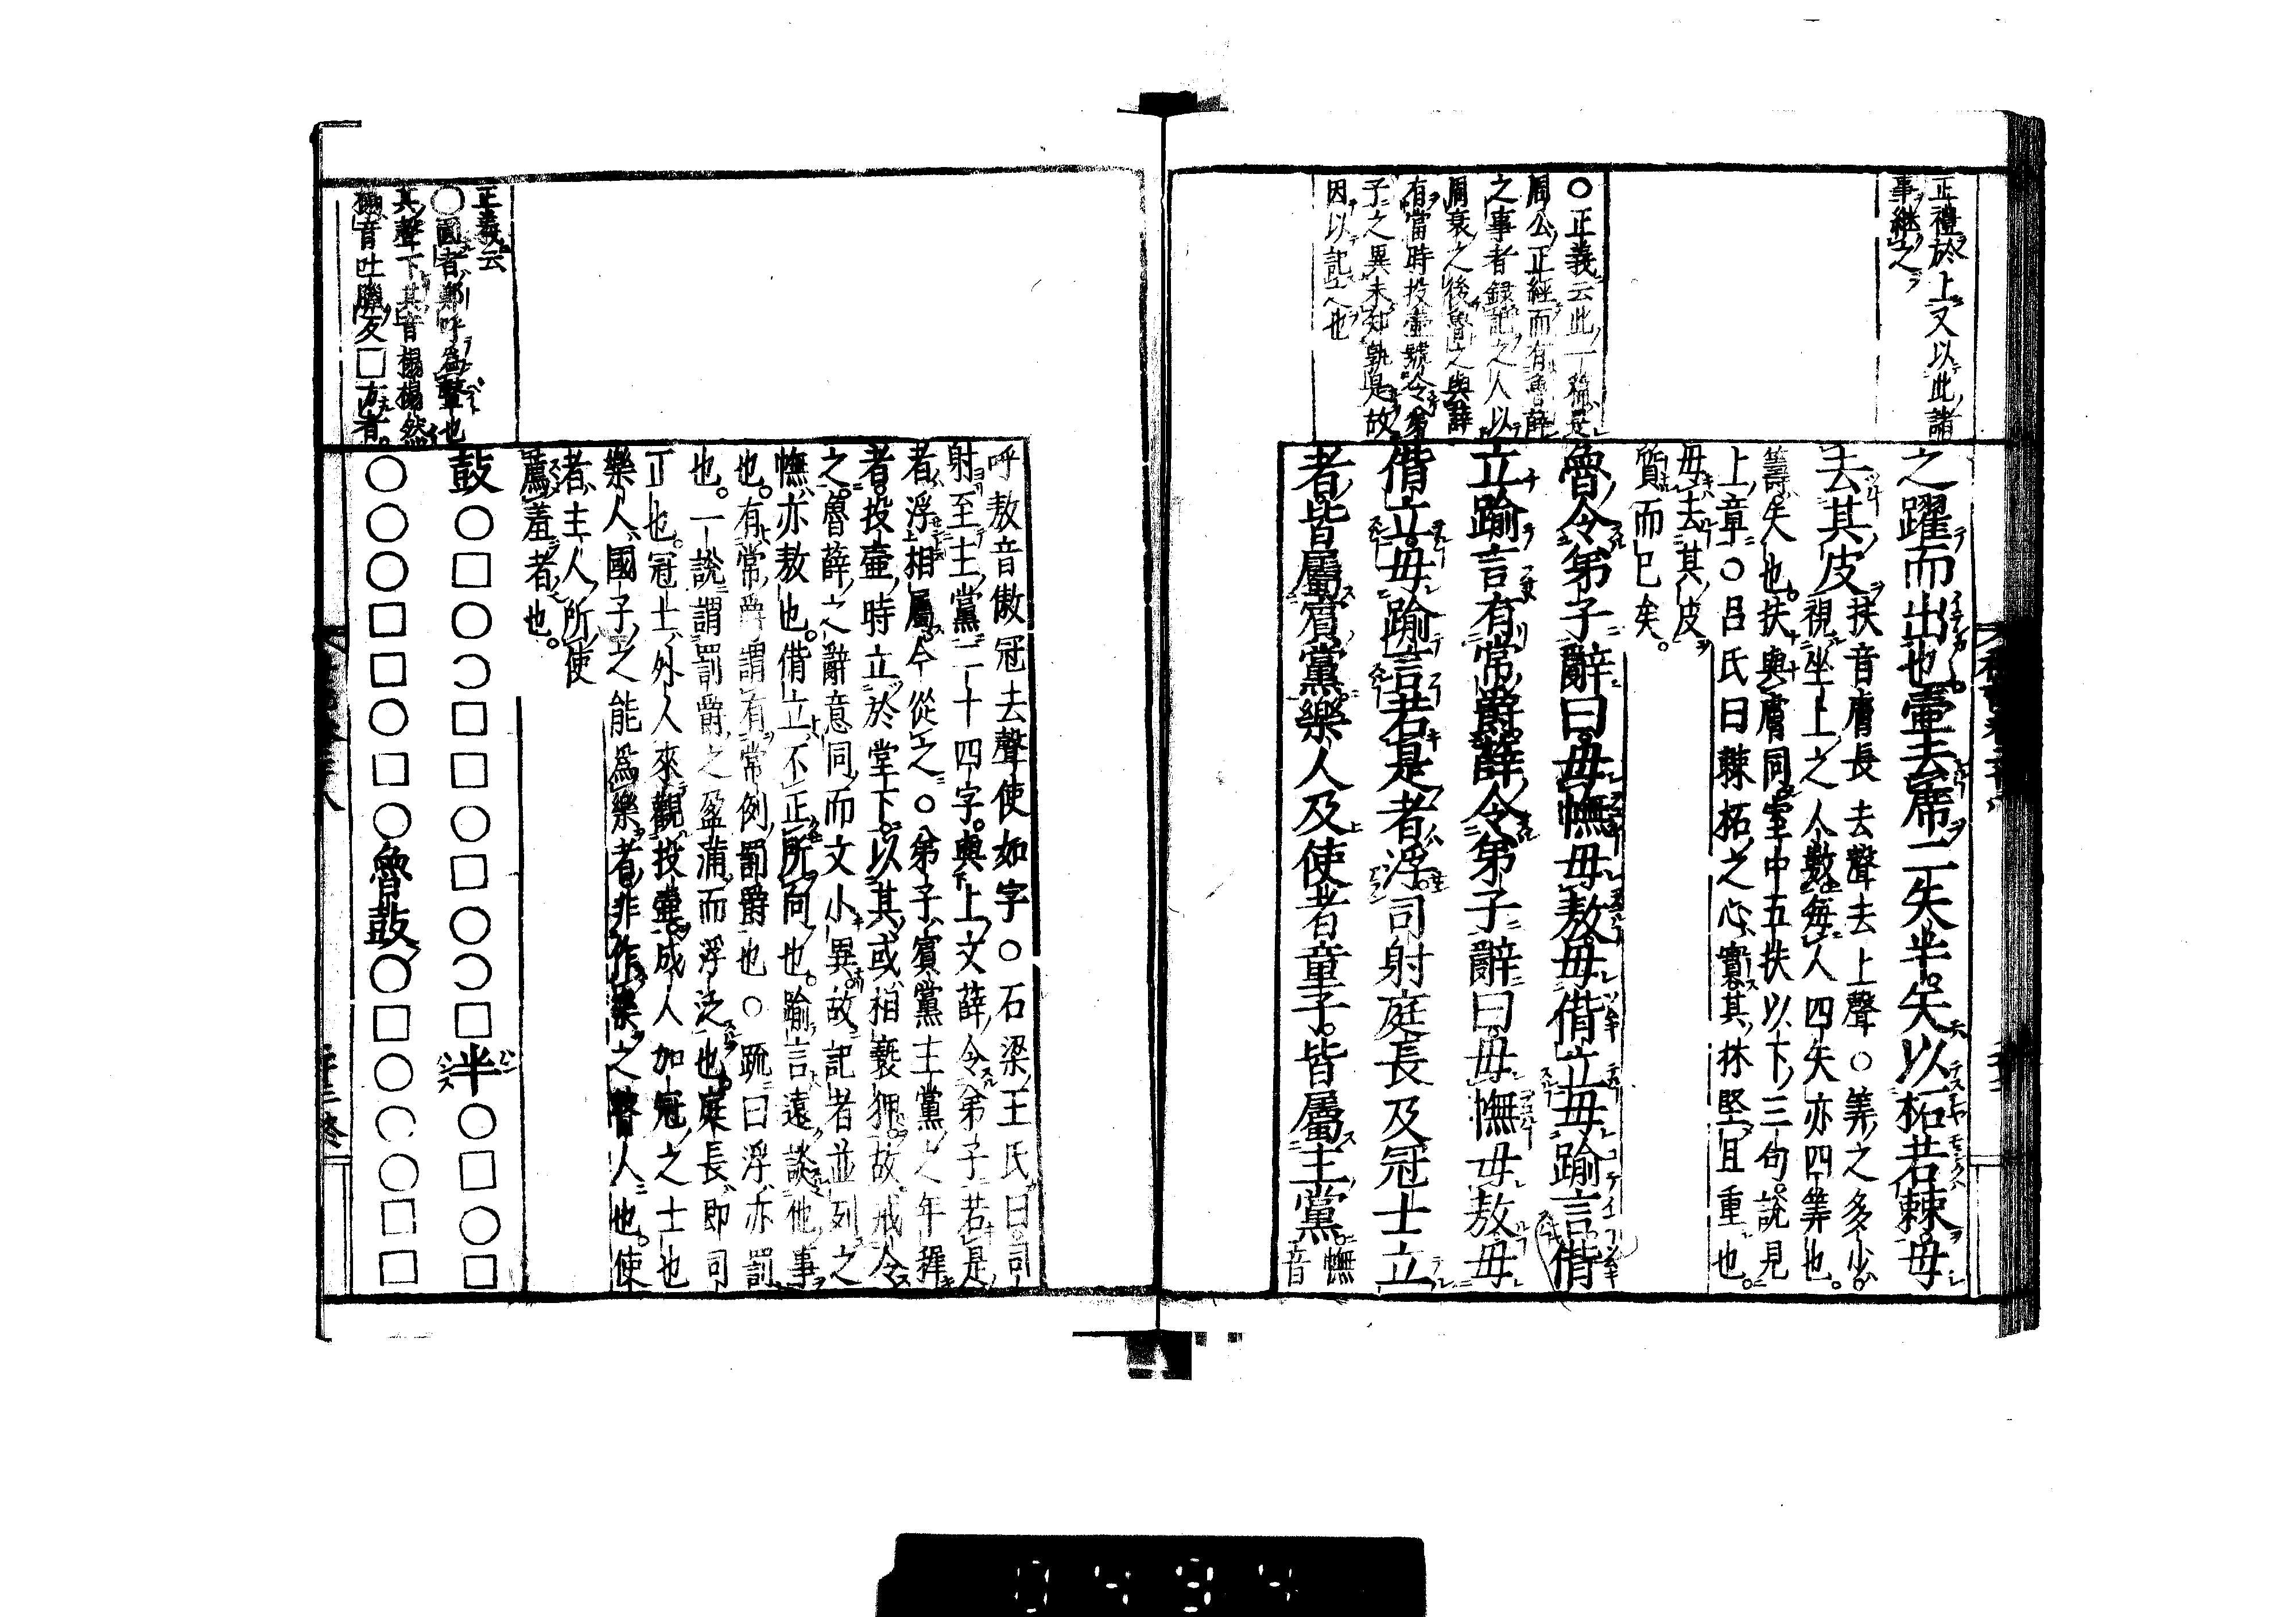 正禮於上又以此諸
事継之
之躍而出也壷去席二矢半矢以柘若棘毋
去其皮
扶音膚長去聲去上聲○筭之多少
視坐上之人數每人四矢亦四筭也
籌矢也扶與膚同室中五扶以下三句說見
上章○呂氏曰棘柘之心實其材堅且重也
毋去其皮
質而已矣
○正義云此一稱是
周公正經而有魯薛
之事者錄記之人以
周衰之後魯之與薛
有當時投壷號令第
子之異未知孰是故
因以記之也
魯令第子辭曰毋憮毋敖毋偝立毋踰言偝
立踰言有常爵薛令第子辭曰毋憮毋敖毋
偝立毋踰言若是者浮司射庭長及冠士立
者皆屬賓黨樂人及使者童子皆屬主黨
憮音
呼敖音傲冠去聲使如字○石梁王氏曰司
射至主黨二十四字與上文薛令第子若是
者浮相屬今從之○第子賓黨主黨之年穉
者投壷時立於堂下以其或相褻狎故戒令
之魯薛之辭意同而文小異故記者並列之
憮亦敖也偝立不正所向也踰言遠談他事
也有常爵謂有常例罰爵也○疏曰浮亦罰
也一說謂罰爵之盈滿而浮泛也庭長即司
正也冠士外人來觀投壷成人加冠之士也
樂人國子之能爲樂者非作樂之瞽人也使
者主人所使
薦羞者也
正義云
○圓者鄭呼爲鼙也
其聲下其音榻榻然
榻音吐臘反□方者
鼓○□○○□□○□○○□半○□○□
○○○□□○□○魯鼓○□○○○□□